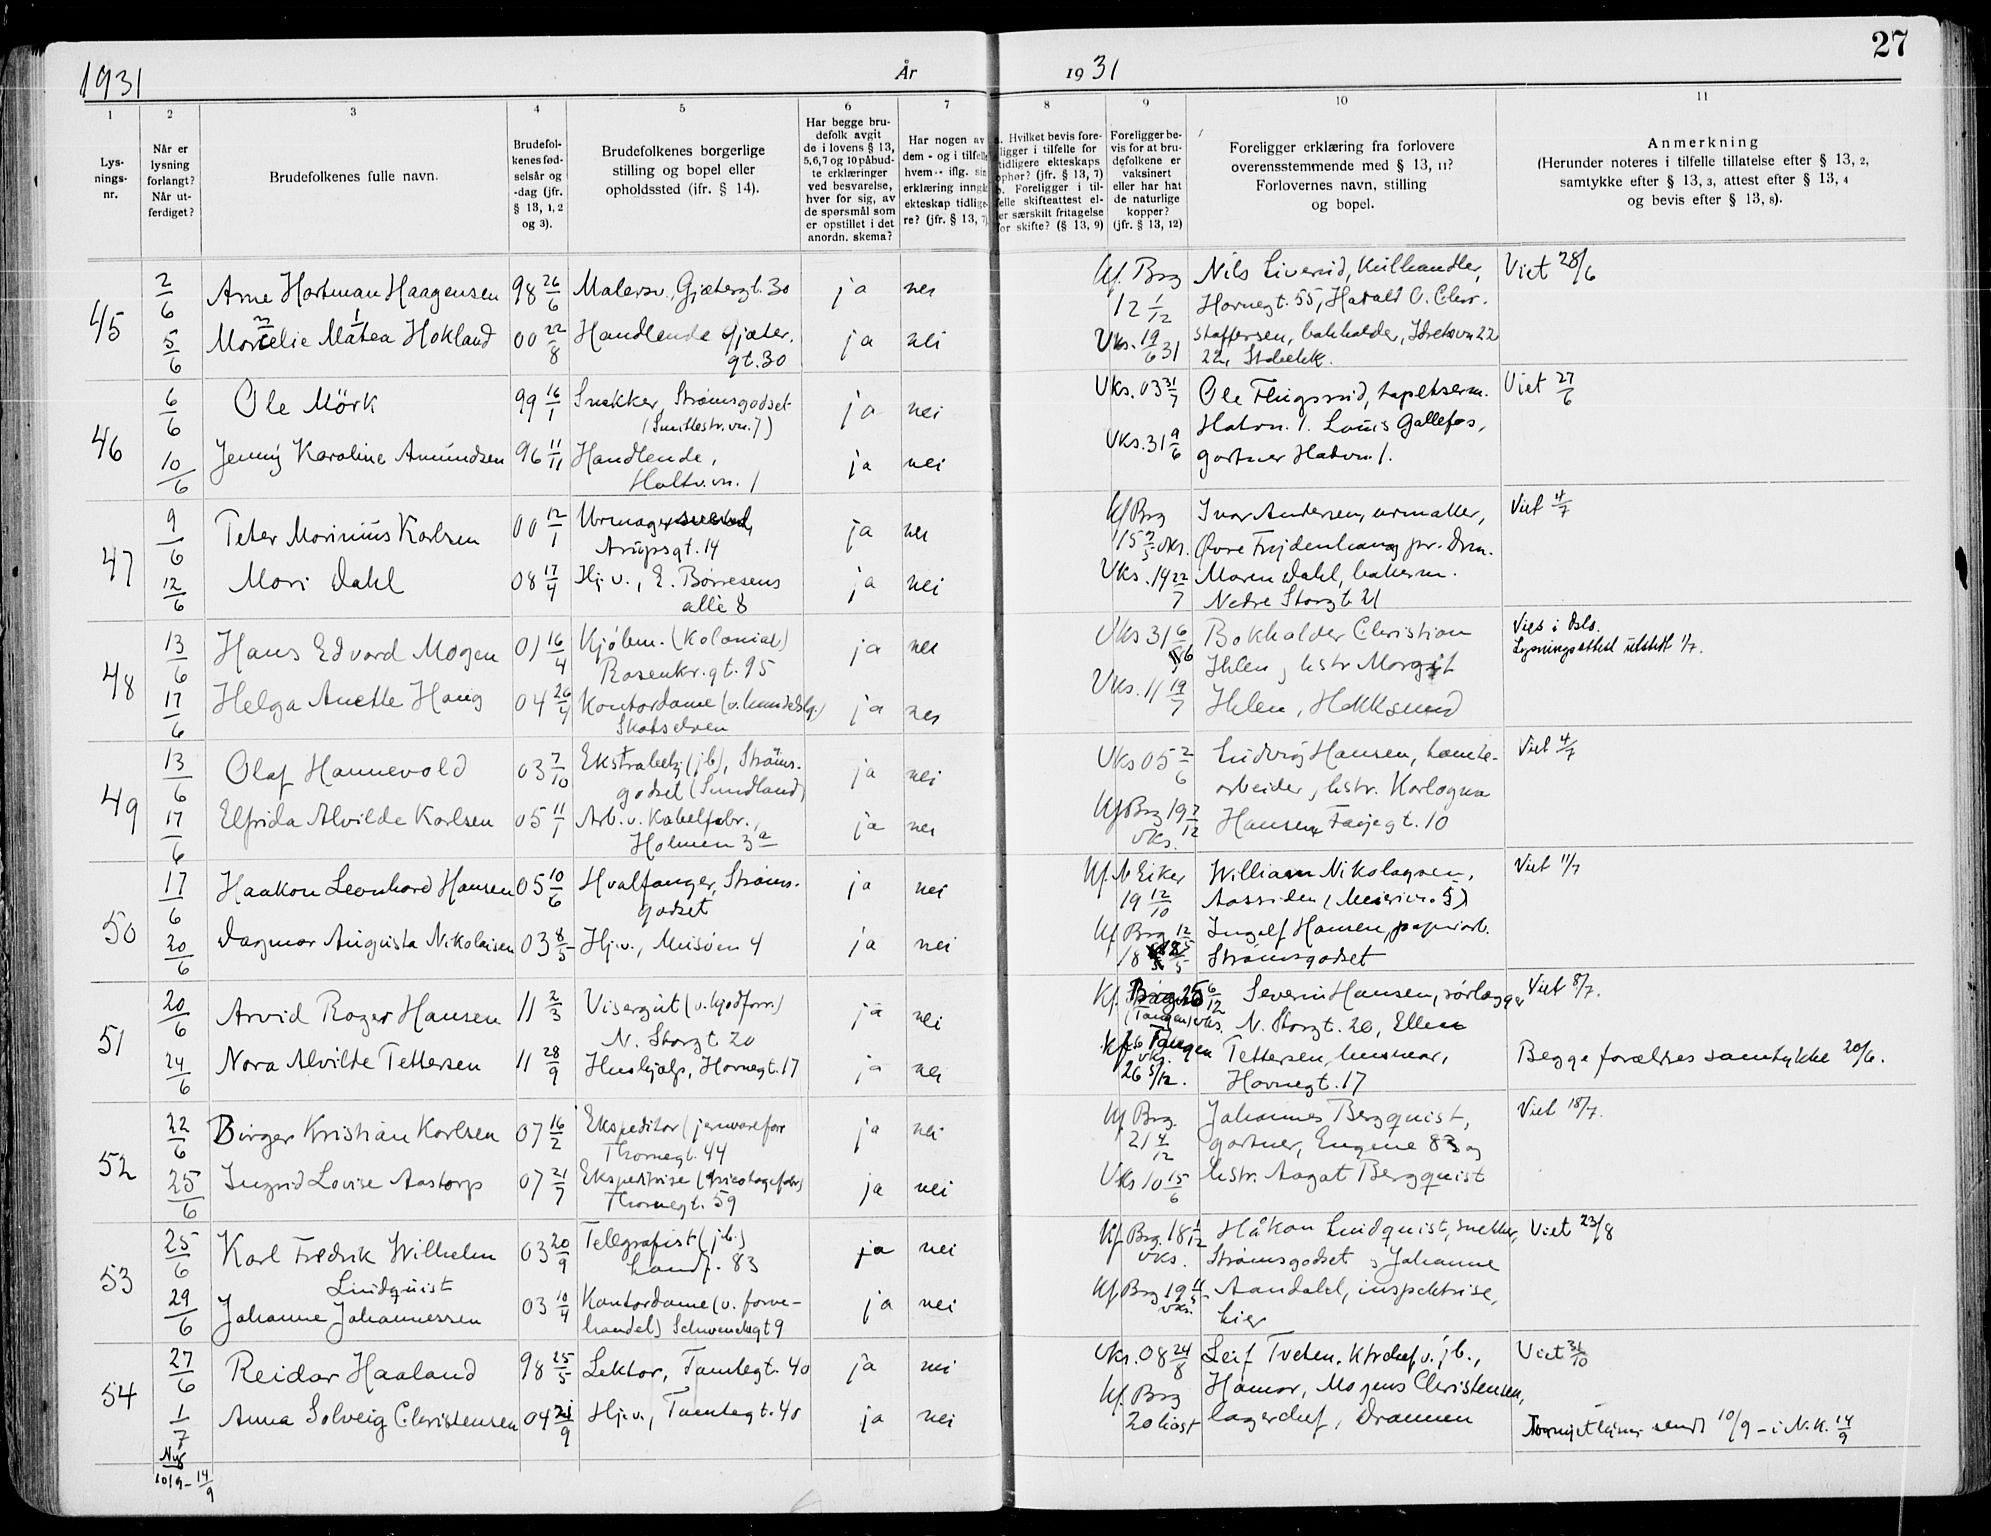 27
1931
År
19 31
1
2
3
4
5
6
7
8
9
10
11
Lys-
nings-
nr.
Når er
lysning
forlangt?
Når ut-
ferdiget?
Brudefolkenes fulle navn.
Brudefol-
kenes fød-
selsår og
-dag (jfr.
§ 13, 1, 2
og 3).
Brudefolkenes borgerlige
stilling og bopel eller
opholdssted (jfr. § 14).
Har begge bru-
defolk avgit
de i lovens § 13,
5,6,7 og 10 påbud-
te erklæringer
ved besvarelse,
hver for sig, av
de spørsmål som
er opstillet i det
anordn. skema?
Har nogen av
dem - og i tilfelle
hvem - iflg. sin
erklæring inngå
ekteskap tidlige-
re? (jfr. § 13, 7)
a. Hvilket bevis fore-
ligger i tilfelle for
tidligere ekteskaps
ophør? (jfr. § 13, 7)
b. Foreligger i til-
felle skifteattest el-
ler særskilt fritagelse
for skifte? (§ 13, 9)
Foreligger be-
vis for at bru-
defolkene er
vaksinert
eller har hat
de naturlige
kopper?
(jfr. § 13, 12)
Foreligger erklæring fra forlovere
overensstemmende med § 13, 11?
Forlovernes navn, stilling
og bopel.
Anmerkning
(Herunder noteres i tilfelle tillatelse efter § 13, 2,
samtykke efter § 13, 3, attest efter § 13, 4
og bevis efter § 13, 8).
45
2/6 Arne Hartman Haagensen 98 26/6 Malersv., Gjætergt. 30 ja nei Kf. Brg 12 1/12 Nils Liverud, Kulhandler, Viet 28/6
Hovnegt. 55, Harald O. Chr.
5/6 Morcelie Matea Hokland 00 22/8 Handlende Gjæter. ja nei Vks. 19/6 31 Staffersen, bokholder,
gt. 30 22, Stabekk.
46
6/6 Ole Mörk 99 16/1 Snekker, Strømsgodset ja nei Vks. 03 31/7 Ole Flugsrud, tapetserm. Viet 27/6
Hatvn. 1. Louis Gallefos,
10/6 Jenny Karoline Amundsen 96 11/11 Handlende, ja nei Vks. 31 9/6 gartner Hatvn 1.
47
9/6 Peter Marinius Karlsen 00 12/1 ja nei Kf Brg Ivar Andersen, urmaker, Viet 4/7
Arupsgt. 14 Øvre Frydenhaug pr. Drm.
12/6 Mari Dahl 08 17/4 Hj. v., E. Børresens ja nei Vks. 14 22/7 Maren Dahl, bakerm.
allè 8 Nedre Storgt 21
48
13/6 Hans Edvard Mogen 01 16/4 Kjøbm. (Kolonial) ja nei Vks 31 6/6 Bokholder Christian Vies i Oslo.
Rosenkr. gt. 95 Ihlen, hstr Margit Lysningsattest utstedt 1/7.
17/6 Helga Anette Haug 04 26/4 Kontordame (v. handelslg.) ja nei Vks. 11 19/7 Ihlen, Hokksund
Skotselven
49
13/6 Olaf Hannevold 03 7/10 Ekstrabetj (jb), Strøms- ja nei Vks 05 2/6 Ludvig Hansen, tomte- Viet 4/7
godset (Sundland) arbeider, hstr. Karlogna
17/6 Elfrida Alvilde Karlsen 05 11/1 Arb. v. Kabelfabr., ja nei Kf Brg 19 7/12 vks. Hansen, Færjegt. 10
Holmen 3a
50
17/6 Haakon Leonhard Hansen 05 10/6 Hvalfanger, Strøms- ja nei Kf. N Eiker 19 12/10 William Nikolaysen, Viet 11/7
godset
20/6 Dagmar Augusta Nikolaisen 03 8/5 Hj. v., Meisøen 4 ja nei Kf Brg 12/5 Ingolf Hansen, papirarb.
18 Strømsgodset
51
20/6 Arvid Roger Hansen 11 2/3 Visergut (v. kjødforr.) ja nei Kf. 25 6/12 Severin Hansen, rørlægger Viet 8/7.
N. Storgt 20 (Tangen) vks. N. Storgt. 20, Ellen
24/6 Nora Alvilde Pettersen 11 28/9 Hushjælp, Hovnegt. 17 ja nei Kf Tangen vks. 26 5/12. Pettersen, husmor, Begge forældres samtykke 20/6.
Hovnegt. 17
52
22/6 Birger Kristian Karlsen 07 16/2 Ekspeditør (jernvareforr ja nei Kf Brg. 21 4/12 Johannes Bergquist, Viet 18/7.
Thornegt. 44 gartner, Engene 83 og
25/6 Ingrid Lovise Aastorp 07 21/7 Ekspeditrise (tricotagefabr) ja nei Vks 10 15/6 hstr. Aagot Bergquist
Thornegt. 59
53
25/6 Karl Fredrik Wilhelm 03 20/9 Telegrafist (jb.) ja nei Kf Brg. 18 1/12 vks. Håkon Lindquist, snekker, Viet 23/8
Lindquist Landf. 83 Strømsgodset, Johanne
29/6 Johanne Johannessen 03 10/4 Kontordame (v. farve- ja nei Kf Brg 19 11/5 vks. Aandahl, inspektrise,
handel) Schwenckegt 9 Lier
54
27/6 Reidar Haaland 98 25/5 Lektor, Tomtegt. 40 ja nei Vks. 08 24/8 Leif Tveten, Ktrchef v. jb., Viet 31/10
Hamar, Mogens Christensen,
1/7 Anna Solveig Christensen 04 21/9 Hj. v., Tomtegt. 40 ja nei Kf Brg 20 høst lagerchef, Drammen
sendt 10/9 - i N.K. 14/9
Ny
10/9 - 14/9